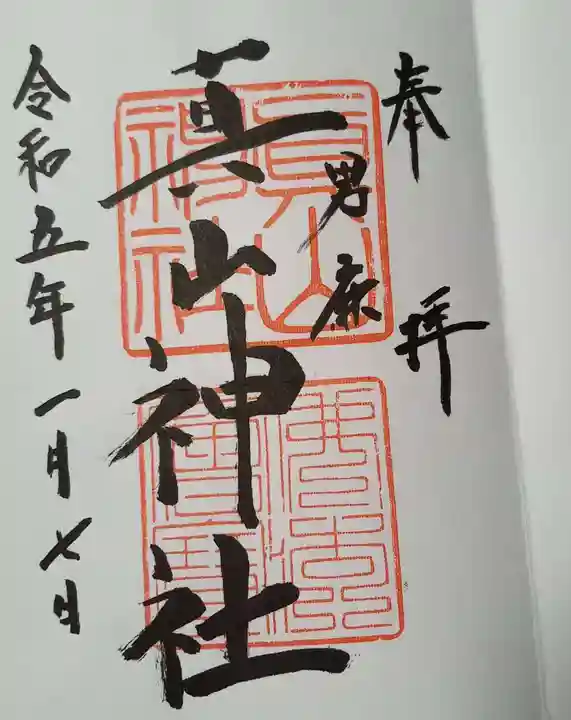 奉拝
男鹿
真山神社
令和五年一月七日
真山神社